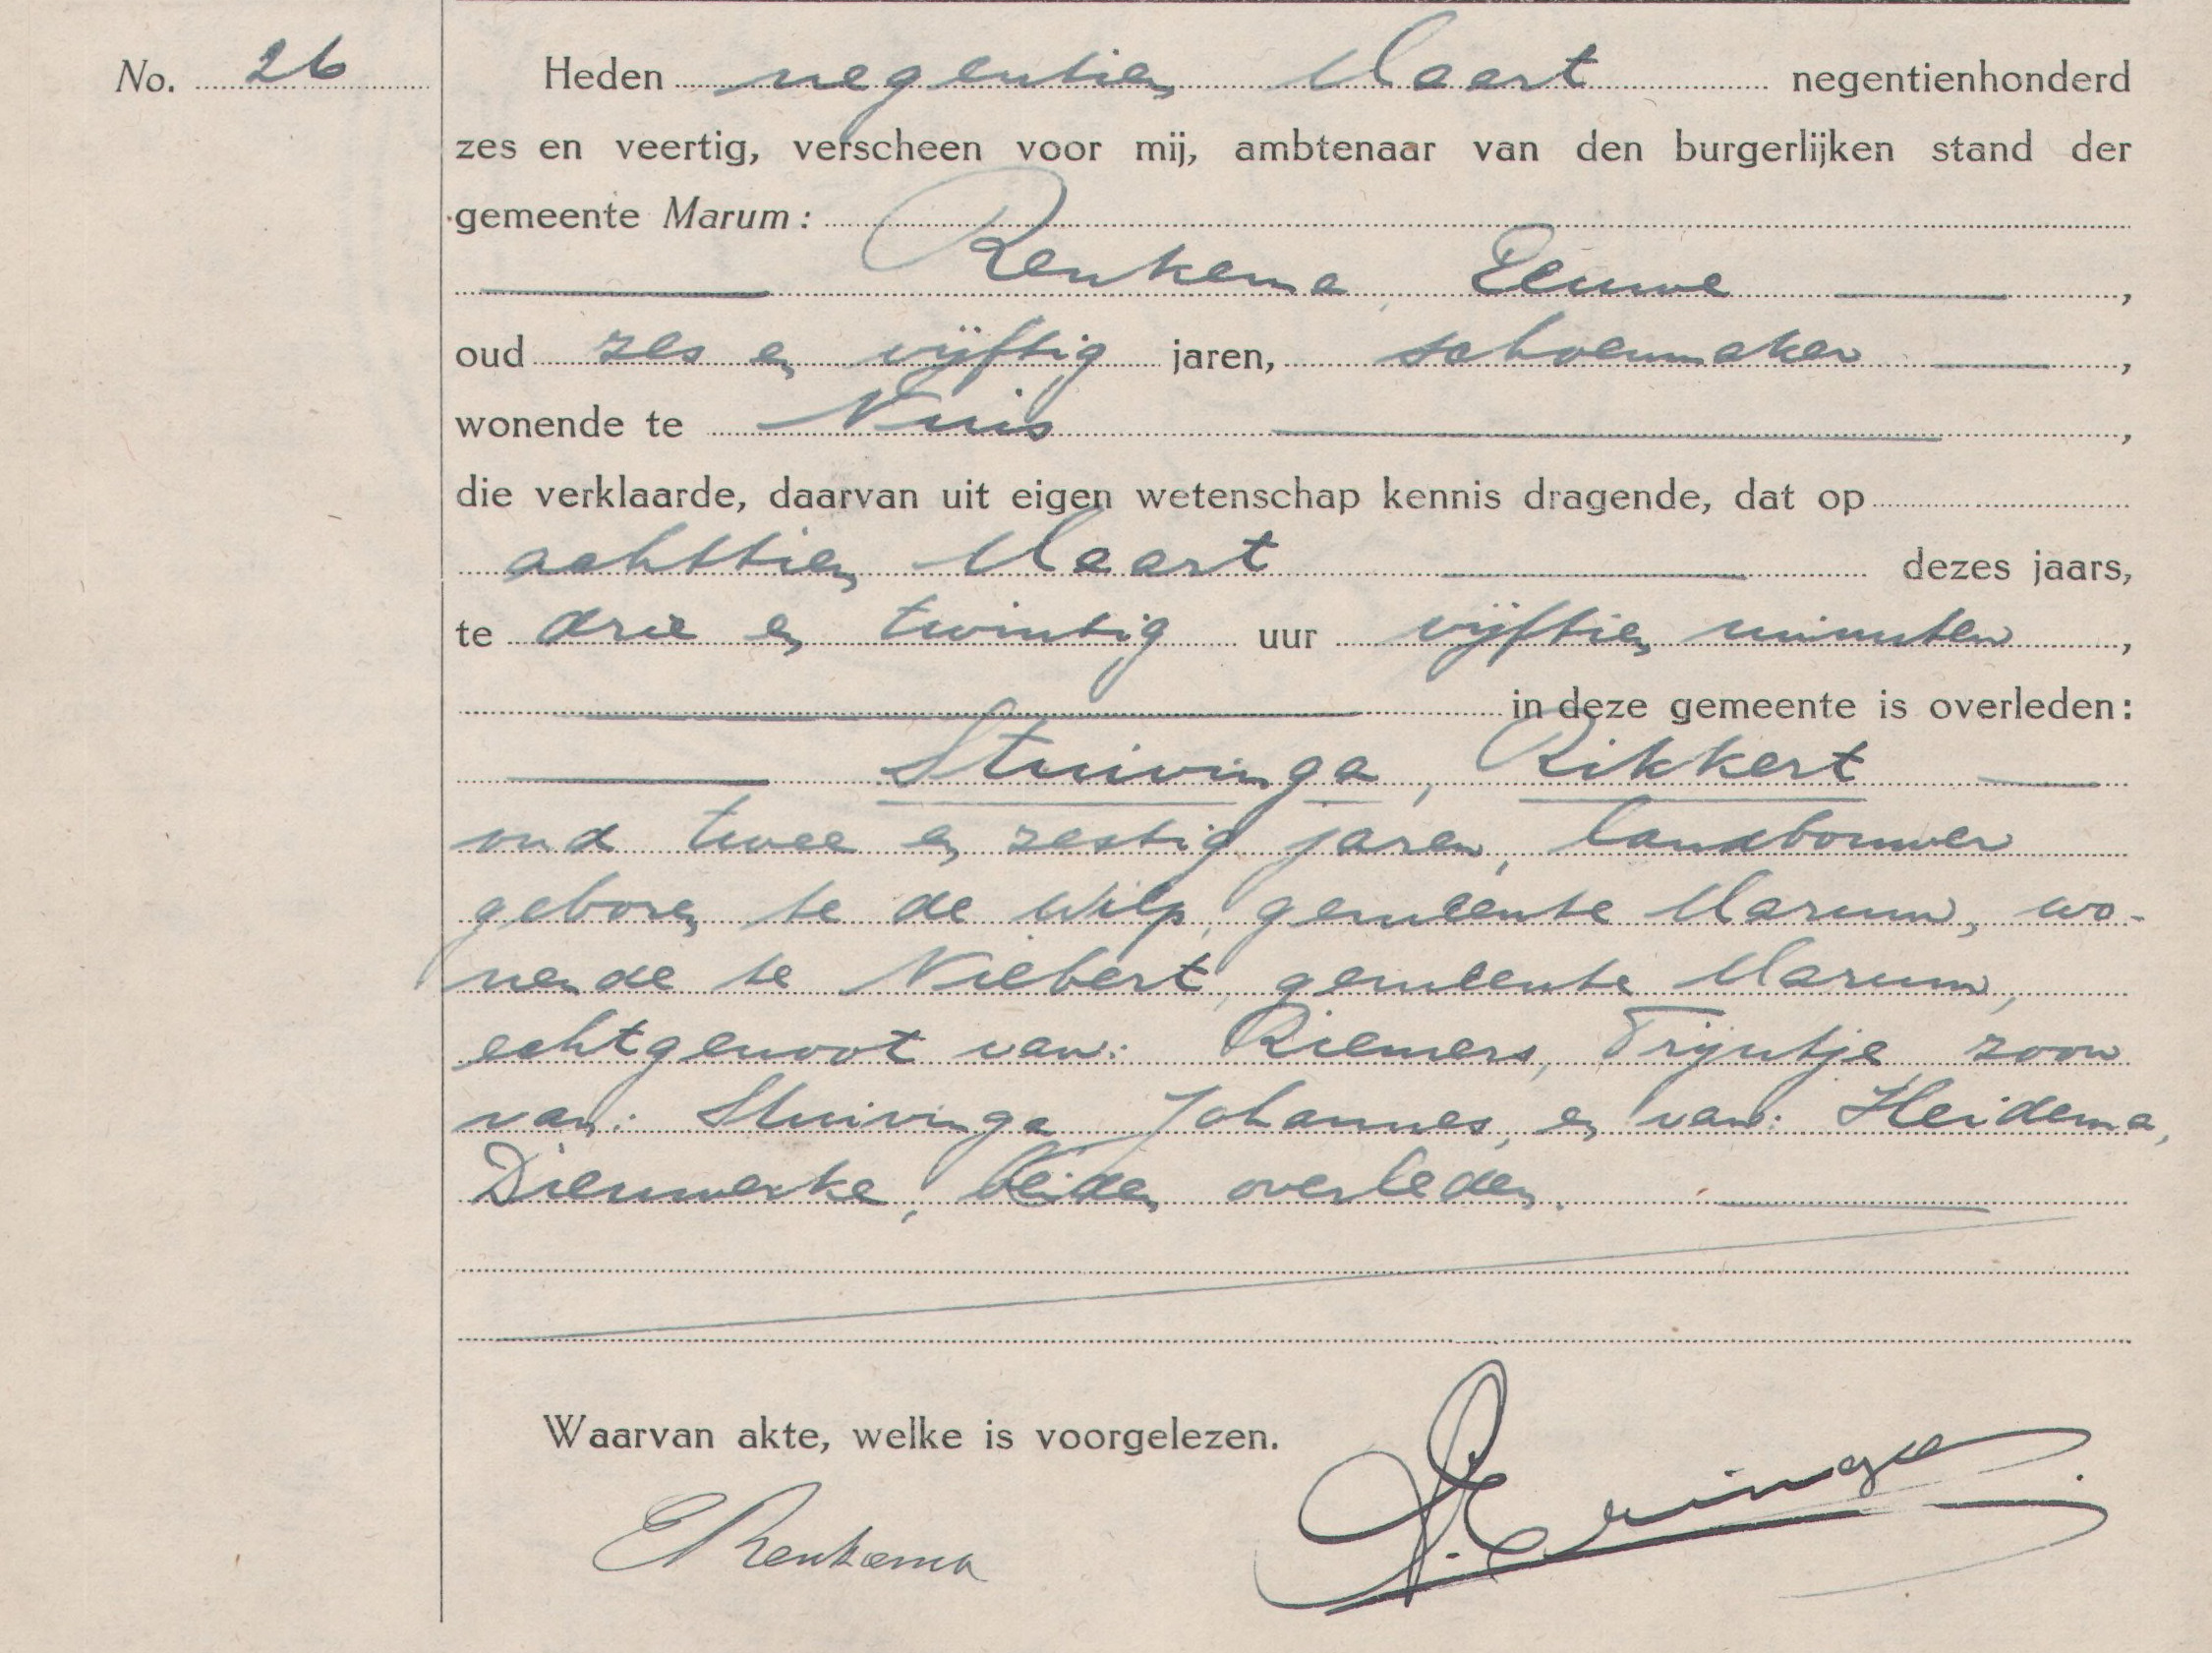 No. 26
Heden negentien Maart negentienhonderd
zes en veertig, verscheen voor mij, ambtenaar van den burgerlijken stand der
gemeente Marum:
Renkema, Eeuwe,
oud zes en vijftig jaren, schoenmaker,
wonende te Nuis,
die verklaarde, daarvan uit eigen wetenschap kennis dragende, dat op
achttien Maart dezes jaars,
te drie en twintig uur vijftien minuten,
in deze gemeente is overleden:
Stuivinga, Rikkert
oud twee en zestig jaren, landbouwer
geboren te de Wilp, gemeente Marum, wo-
nende te Niebert, gemeente Marum,
echtgenoot van: Riemers, Trijntje zoon
van: Stuivinga Johannes, en van: Heidema,
Dieuwerke, beiden overleden.
Waarvan akte, welke is voorgelezen.
E Renkema